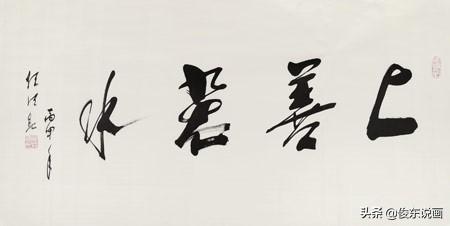 上善若水
丙申年
任法融
头条 @俊东说画